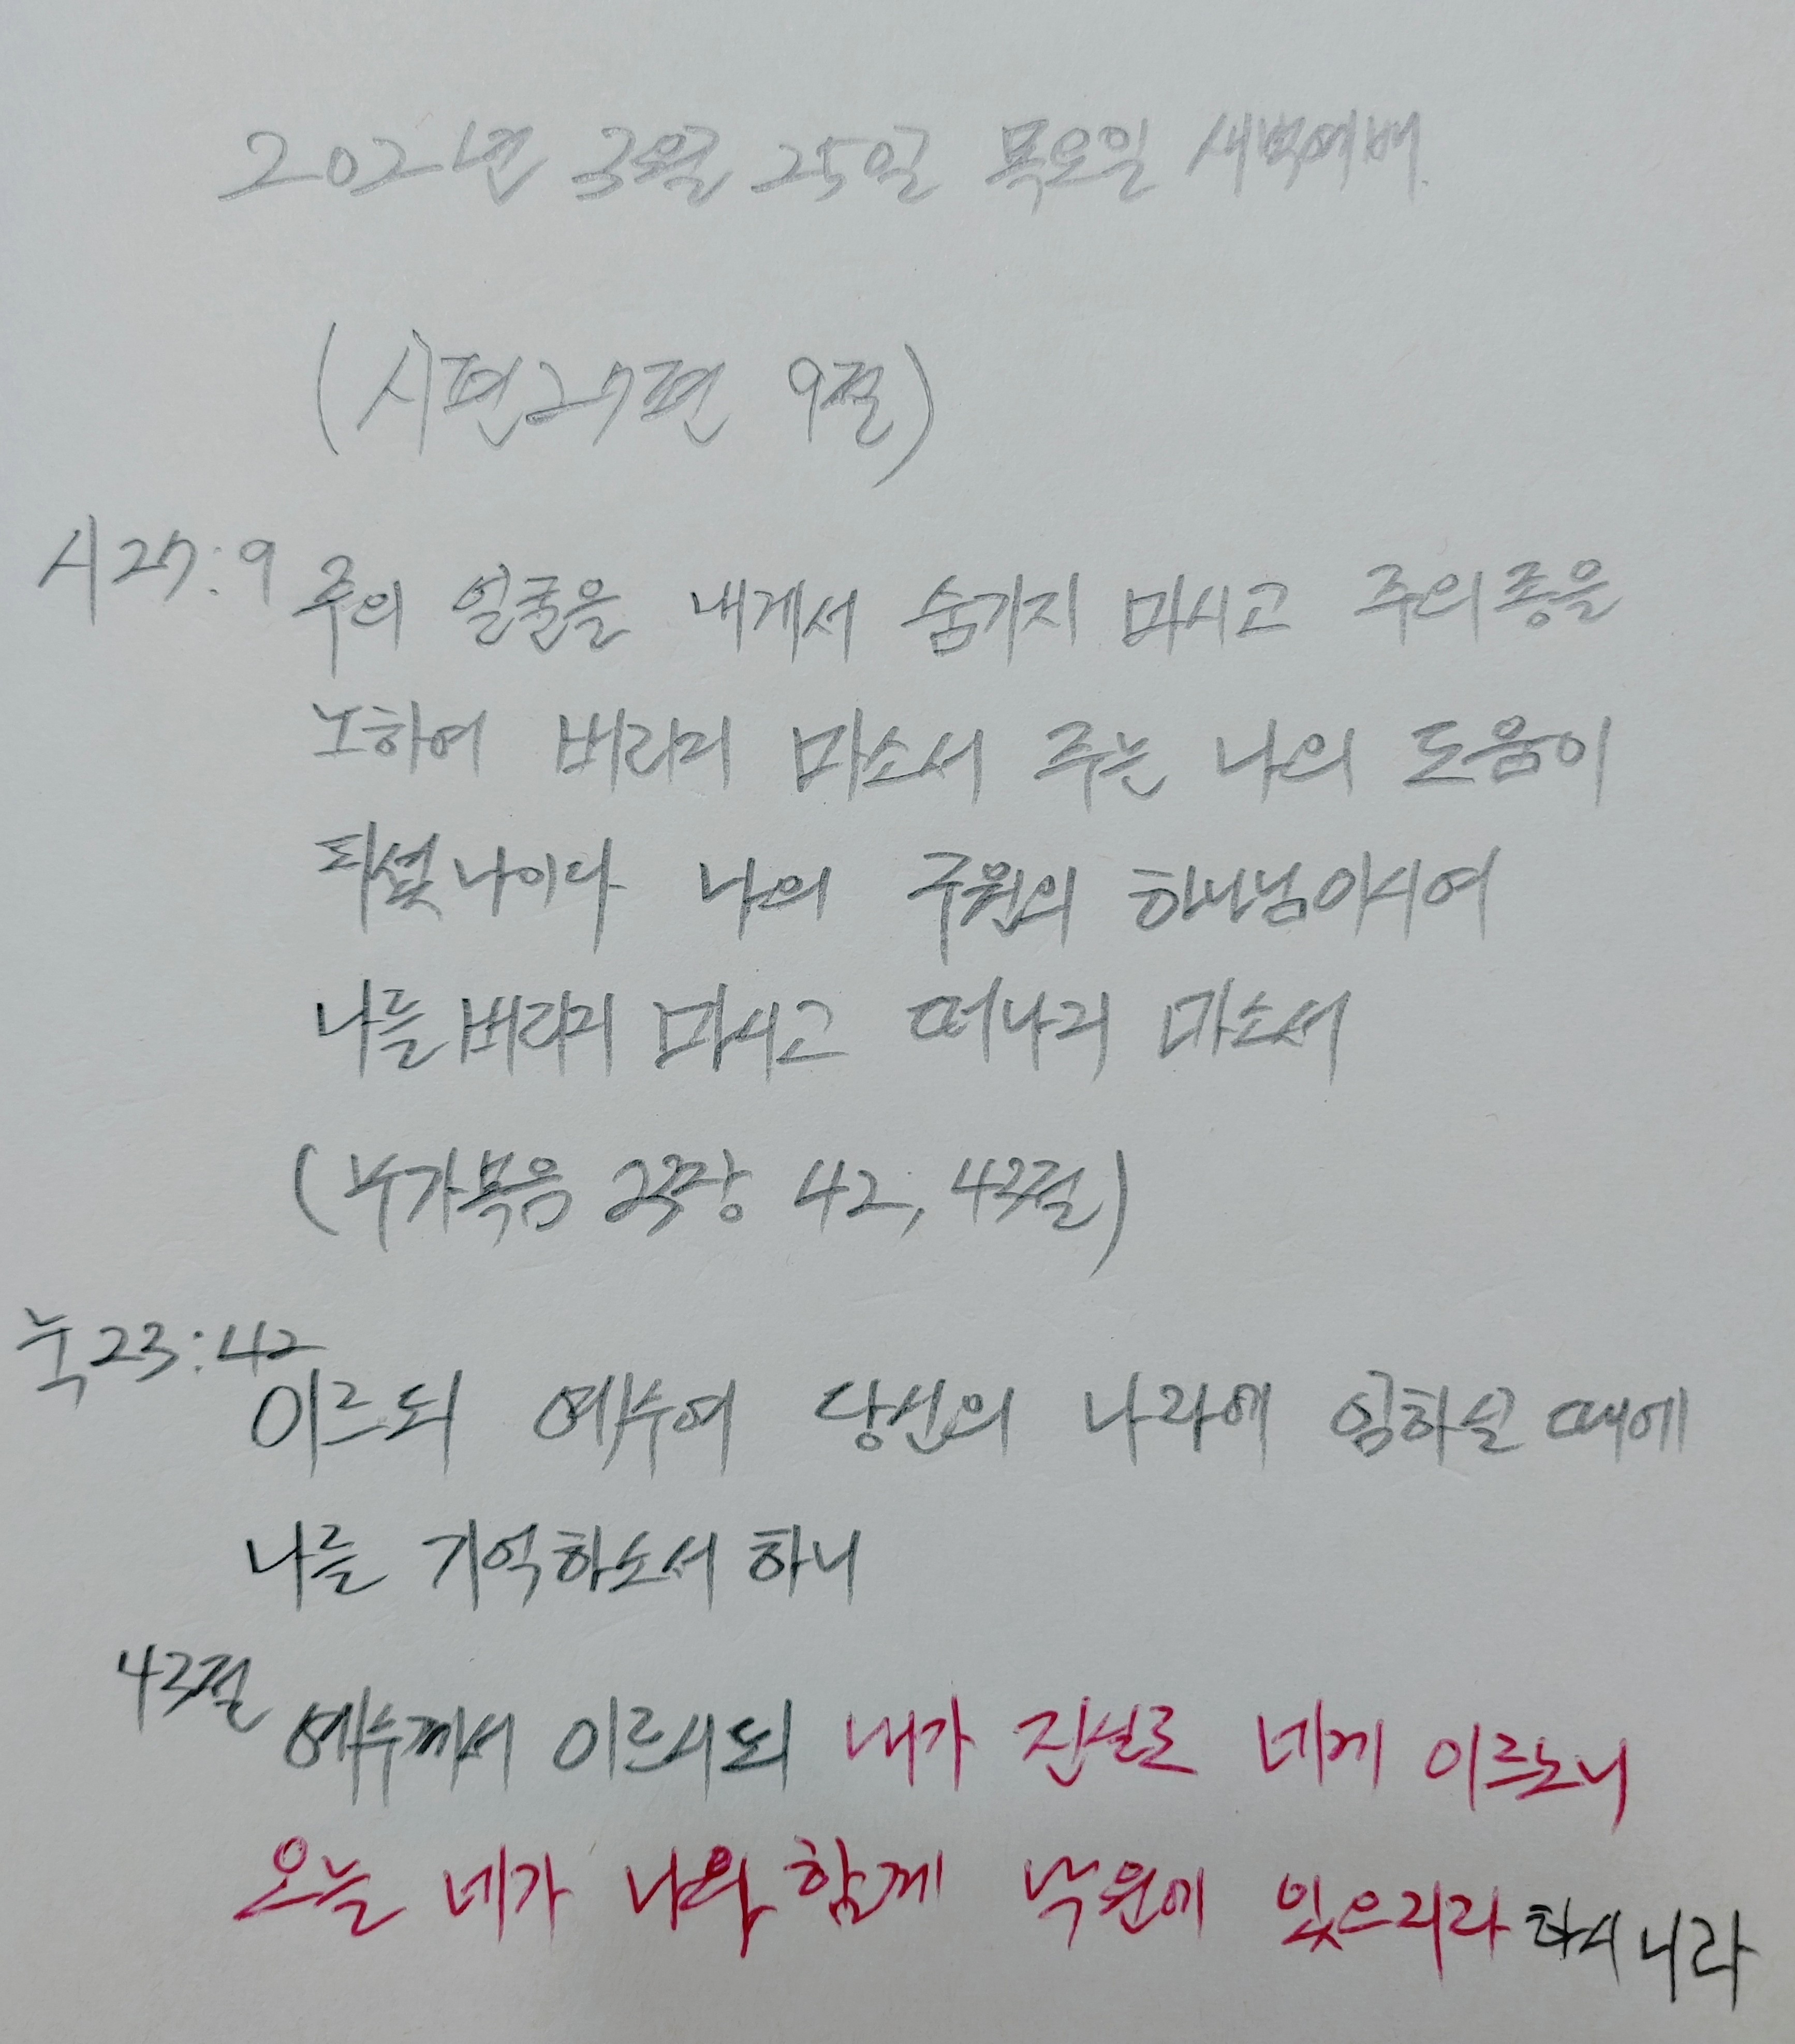 2021년 3월 25일 목요일 새벽예배.
(시편27편 9절)
시27:9
주의 얼굴을 내게서 숨기지 마시고 주의종을
노하여 버리지 마소서 주는 나의 도움이
되셨나이다 나의 구원의 하나님이시여
나를 버리지 마시고 떠나지 마소서
(누가복음 23장 42, 43절)
눅23:42
이르되 예수여 당신의 나라에 임하실 때에
나를 기억하소서 하니
43절
예수께서 이르시되 내가 진실로 네게 이르노니
오늘 네가 나와 함께 낙원에 있으리라 하시니라